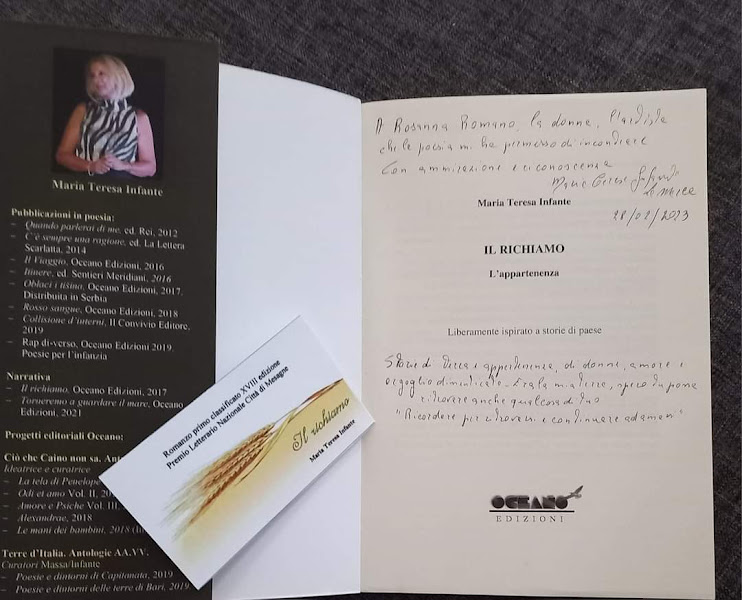 Maria Teresa Infante
Pubblicazioni in poesia:
– Quando parlerai di me, ed. Rei, 2012
– C'è sempre una ragione, ed. La Lettera
Scarlatta, 2014
– Il Viaggio, Oceano Edizioni, 2016
– Itinere, ed. Sentieri Meridiani, 2016
– Oblaci i tišina, Oceano Edizioni, 2017.
Distribuita in Serbia
– Rosso sangue, Oceano Edizioni, 2018
– Collisione d'interni, Il Convivio Editore,
2019
– Rap di-verso, Oceano Edizioni 2019.
Poesie per l'infanzia
Narrativa
– Il richiamo, Oceano Edizioni, 2017
– Torneremo a guardare il mare, Oceano
Edizioni, 2021
Progetti editoriali Oceano:
Ciò che Caino non sa.
Ideatrice e curatrice
– La tela di Penelope
– Odi et amo Vol. II,
– Amore e Psiche Vol. III.
– Alexandrae, 2018
– Le mani dei bambini, 2018
Terre d'Italia. Antologie AA.VV.
Curatori Massa/Infante
– Poesie e dintorni di Capitanata, 2019
– Poesie e dintorni delle terre di Bari, 2019.
Romanzo primo classificato XVIII edizione
Premio Letterario Nazionale Città di Mesagne
Il richiamo
Maria Teresa Infante
A Rosanna Romano, la donna, l'artista
che la poesia mi ha permesso di incontrare
Con ammirazione e riconoscenza
Maria Teresa Infante
La Marca
28/02/2023
Maria Teresa Infante
IL RICHIAMO
L'appartenenza
Liberamente ispirato a storie di paese
Storie di terra e appartenenza, di donne, amore e
orgoglio spero
ritrovare anche qualcosa di tuo
"Ricordare per ritrovarsi e continuare ad amarsi"
OCEANO
EDIZIONI